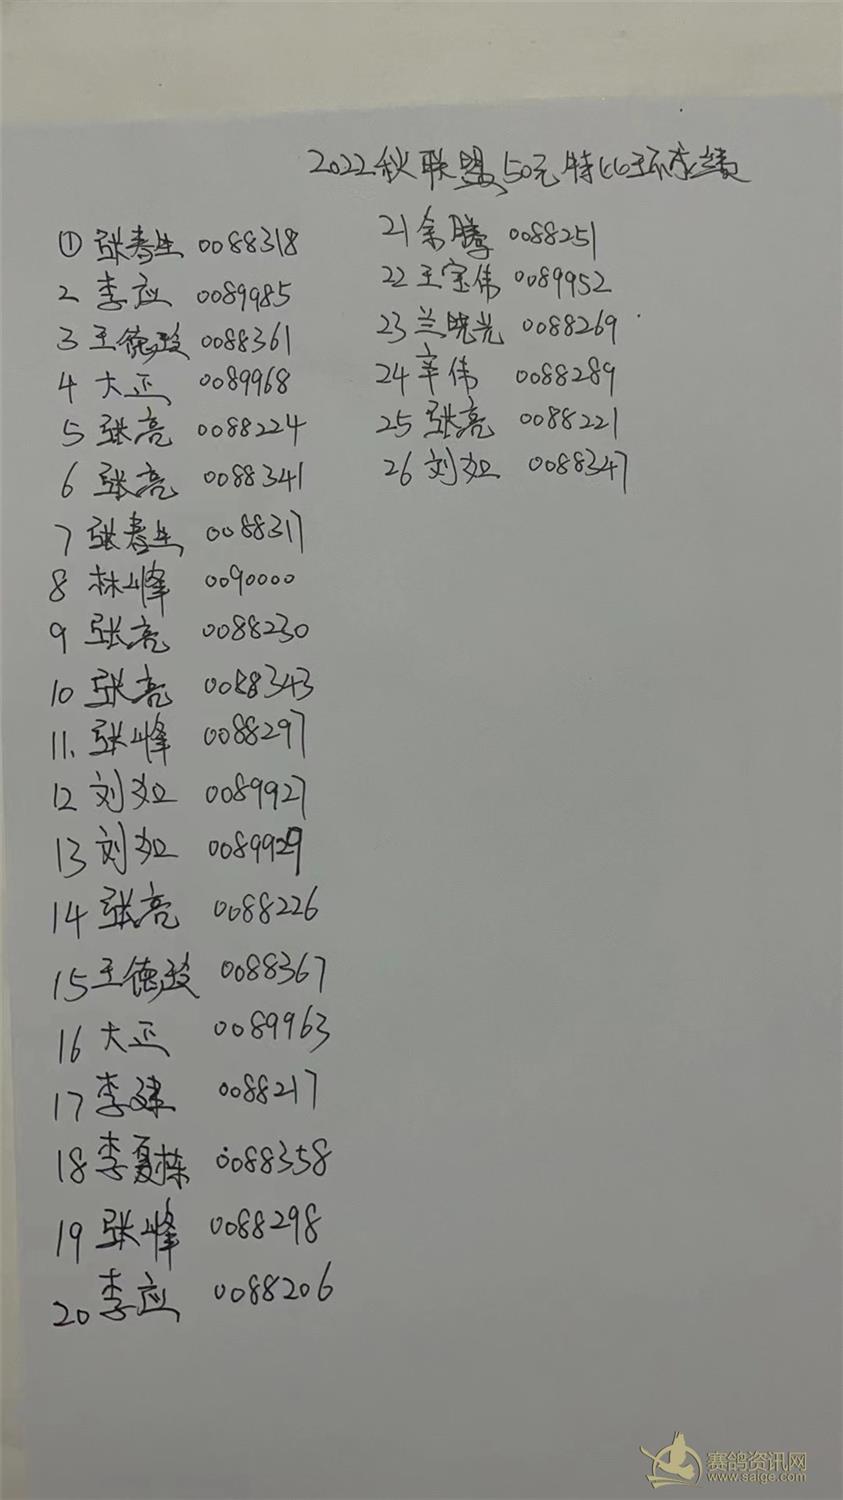 2022秋联盟50元特比环成绩
① 张春生 0088318
2 李应 0089985
3 王德政 0088361
4 大正 0089968
5 张亮 0088224
6 张亮 0088341
7 张春生 0088317
8 林峰 0090000
9 张亮 0088230
10 张亮 0088343
11、张峰 0088297
12 刘如 0089927
13 刘如 0089929
14 张亮 0088226
15 王德政 0088367
16 大正 0089963
17 李建 0088217
18 李夏栋 0088358
19 张峰 0088298
20 李应 0088206
21 余腾 0088251
22 王宝伟 0089952
23 兰晓光 0088269
24 辛伟 0088289
25 张亮 0088221
26 刘如 0088347
赛鸽资讯网
www.saige.com